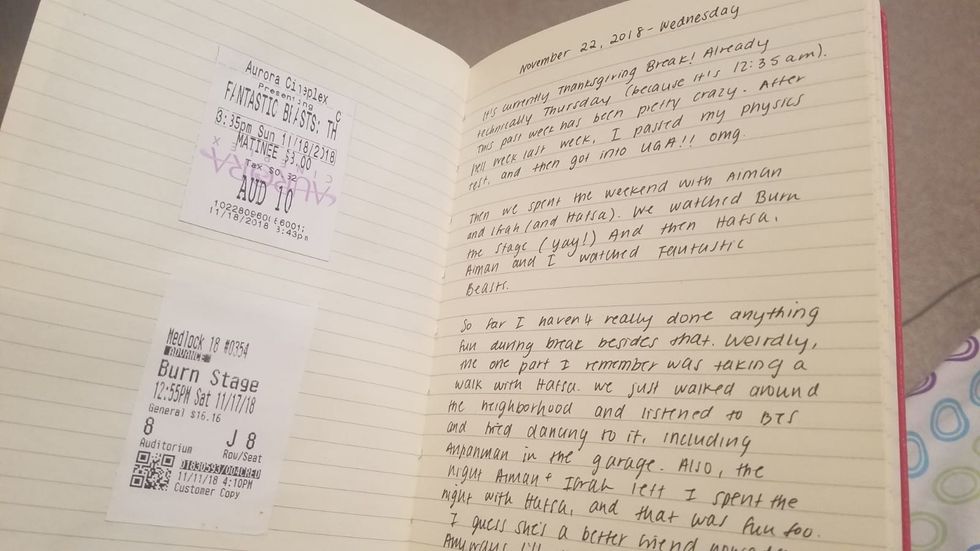 Aurora Cineplex
Presenting
FANTASTIC BEASTS: TH
3:35pm Sun 11/18/2018
MATINEE $3.00
Tax $0.32
AUD 10
11/18/2018 3:43pm
Medlock 18 #0354
ADVANCE
Burn Stage
12:55PM Sat 11/17/18
General $16.16
8 J 8
Auditorium Row/Seat
11/11/18 4:10PM
Customer Copy
November 22, 2018 - Wednesday
It's currently Thanksgiving Break! Already
technically Thursday (because it's 12:35 am).
This past week has been pretty crazy. After
hell week last week, I passed my physics
test, and then got into UGA!! omg.
Then we spent the weekend with Aiman
and Irah (and Hafsa). We watched Burn
the Stage (yay!) And then Hafsa,
Aiman and I watched Fantastic
Beasts.
So far I haven't really done anything
fun during break besides that. Weirdly,
the one part I remember was taking a
walk with Hafsa. We just walked around
the neighborhood and listened to BTS
and tried dancing to it, including
Anpanman in the garage. Also, the
night Aiman + left I spent the
night with Hafsa, and that was fun too.
I guess she's a better friend
Anyways I'll